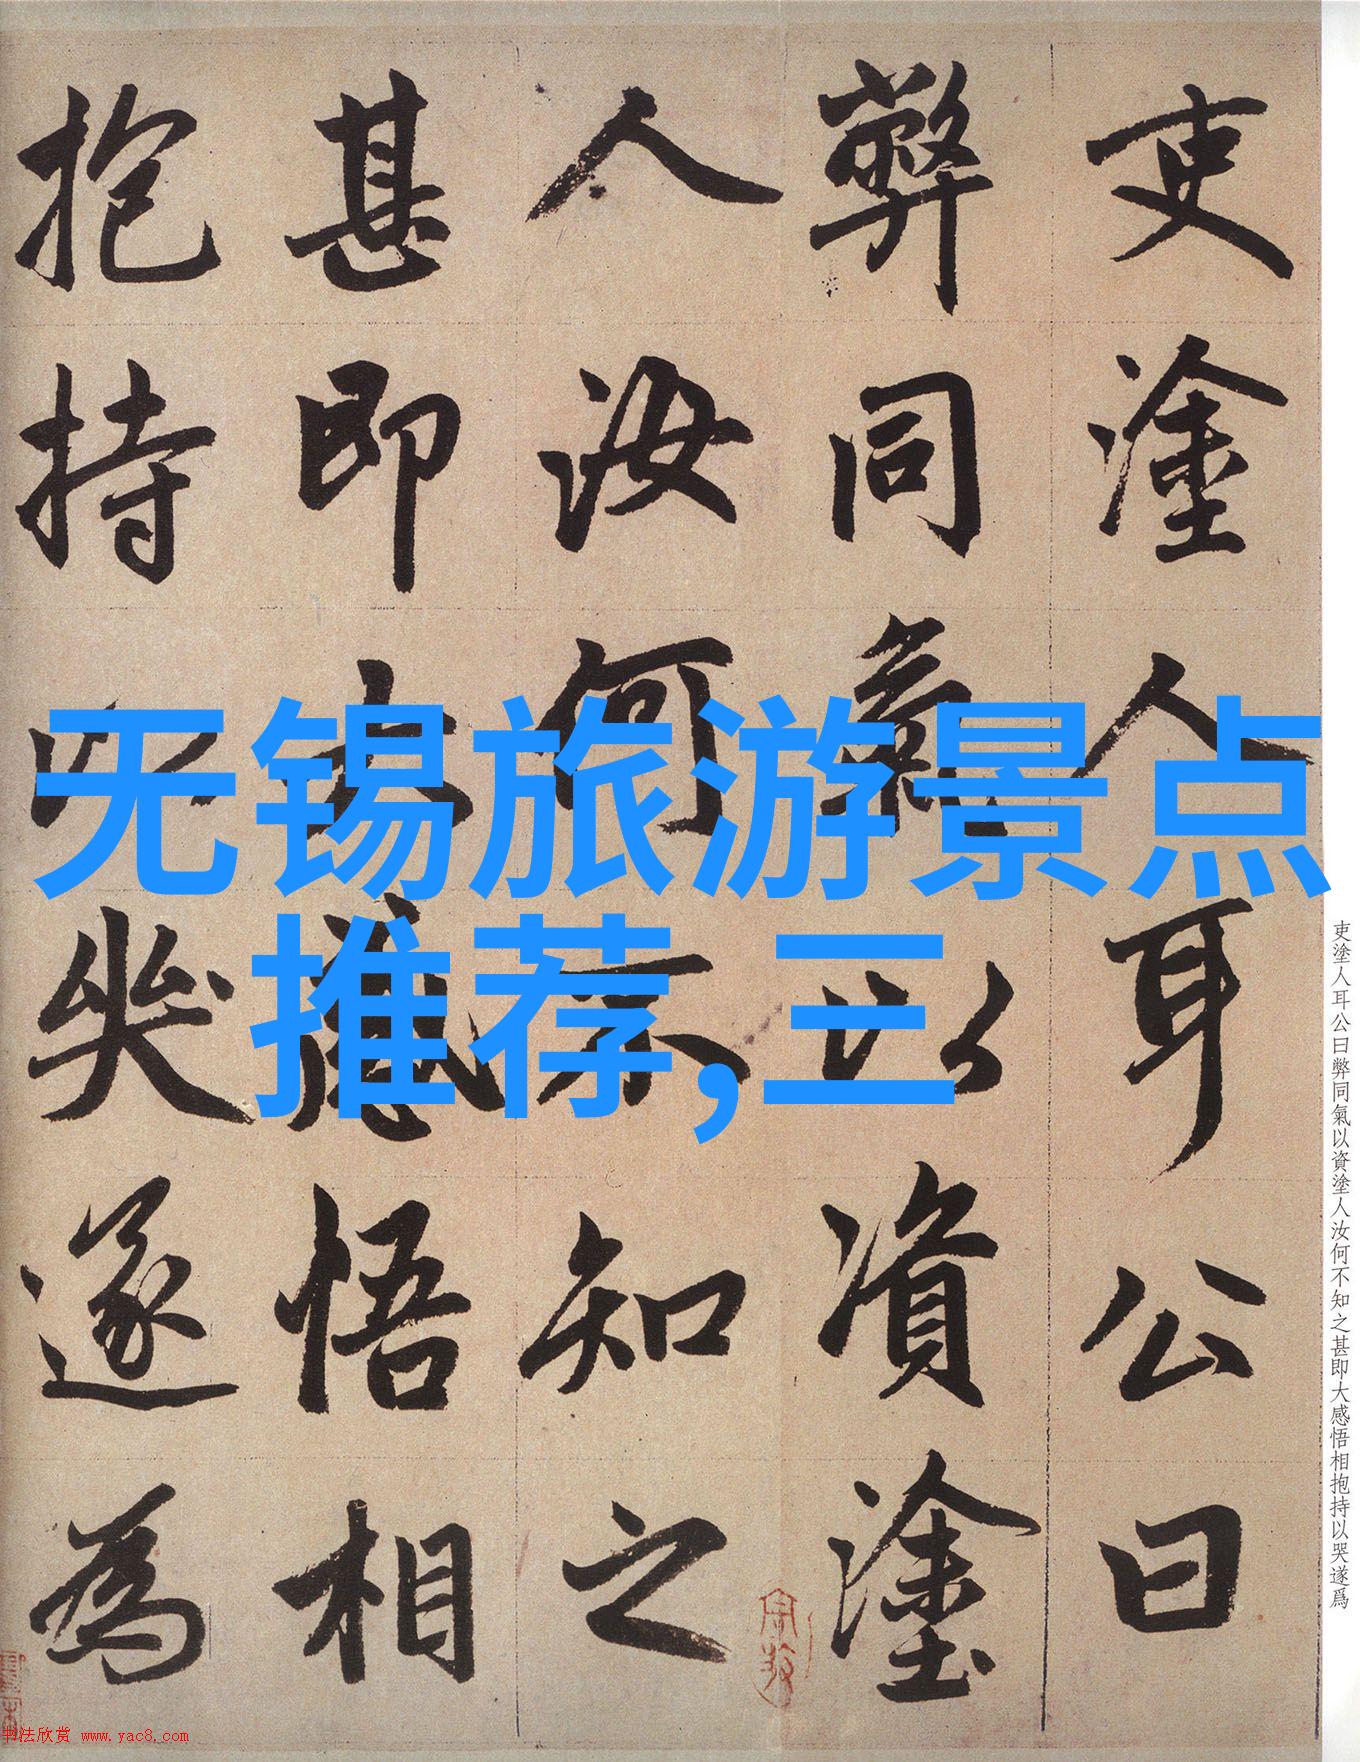 吏塗人耳公曰
弊同氣以資塗
人汝何不知之
甚即大感悟相
抱持以哭遂為
无锡旅游景点
推荐,三
吏塗人耳公曰弊同氣以資塗人汝何不知之甚即大感悟相抱持以哭遂爲
书法欣赏 www.yac8.com